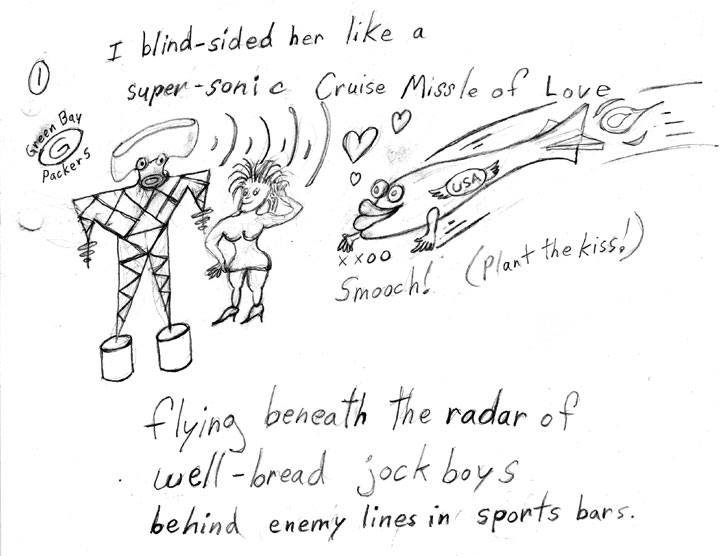 1
I blind-sided her like a
super-sonic Cruise Missle of Love
Green Bay
G
Packers
USA
xxoo
Smooch! (Plant the kiss!)
flying beneath the radar of
well-bread jock boys
behind enemy lines in sports bars.